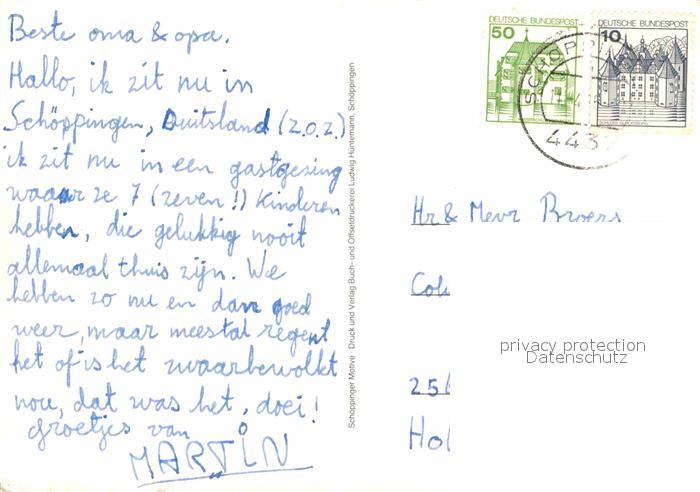 Beste oma & opa.
Hallo, ik zit nu in
Schöppingen, Duitsland (z.o.z.)
ik zit nu in een gastgezing
waar ze 7 (zeven!) kinderen
hebben, die gelukkig nooit
allemaal thuis zijn. We
hebben zo nu en dan goed
weer, maar meestal regent
het of is het zwaarbewolkt
nou, dat was het, doei!
groetjes van
MARTIN
Schöppinger Motive · Druck und Verlag Buch- und Offsetdruckerei Ludwig Hüntemann, Schöppingen
DEUTSCHE BUNDESPOST
50
DEUTSCHE BUNDESPOST
10
SCHÖPP
443
Hr & Mevr Broers
privacy protection
Datenschutz
25
Hol